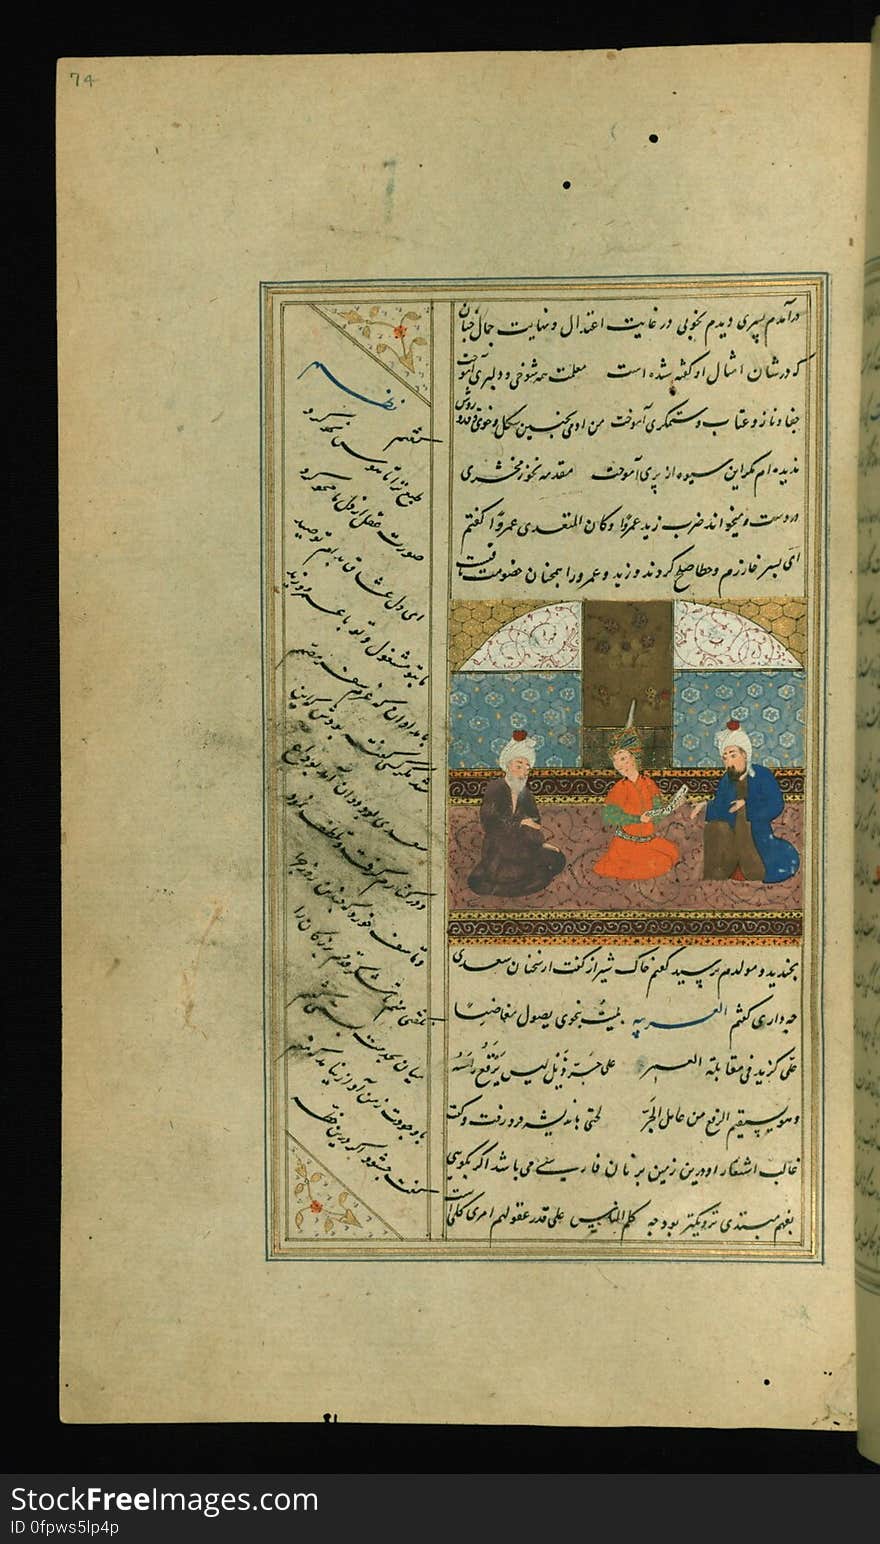 74
درآمدم پسری دیدم بخوبی در غایت اعتدال و نهایت جمال چنان
که در شان امثال او گفته شده است معلمت همه شوخی و دلبری آموخت
جفا و ناز و عتاب و ستمکری آموخت من ادمی بچنین شکل و خوی و قد و روش
ندیده ام مکر این شیوه از پری آموخت مقدمه نحو زمخشری
در دست و میخواند ضرب زید عمروا و کان المتعدی عمروا گفتم
ای پسر خوارزم و خطا صلح کردند و زید و عمرو را همچنان خصومت باقیست
بخندید و مولدم پرسید گفتم خاک شیراز گفت از سخنان سعدی
چه داری گفتم العربیه بلیت بنحوی یصول مغاضبا
علی کزید فی مقابلة العمرو علی جر ذیل لیس یرفع راسه
و هل یستقیم الرفع من عامل الجر لختی باندیشه فرو رفت و گفت
غالب اشعار او درین زمین بزبان فارسی می باشد اگر بگویی
بفهم مبتدی نزدیکتر بود چه کلم الناس علی قدر عقولهم
نظم
گفتم
طبع ترا تا هوس نحو کرد
صورت عقل از دل ما محو کرد
ای دل عشاق بدام تو صید
ما بتو مشغول و تو با عمرو و زید
بامدادان که عزم سفر مصمم
شد مکر کسی گفته بودش که این
سعدی بود دوان آمد بوداع
در کنارم گرفت و تلطف نمود
و تاسف خورد که چندین روز چرا
نگفتی منم تا شکر قدوم بزرگان را
میان بخدمت بستمی گفتم
با وجودت ز من آواز نیاید که منم
گفت چه شود اگر درین خطه
StockFreeImages.com
ID 0fpws5lp4p